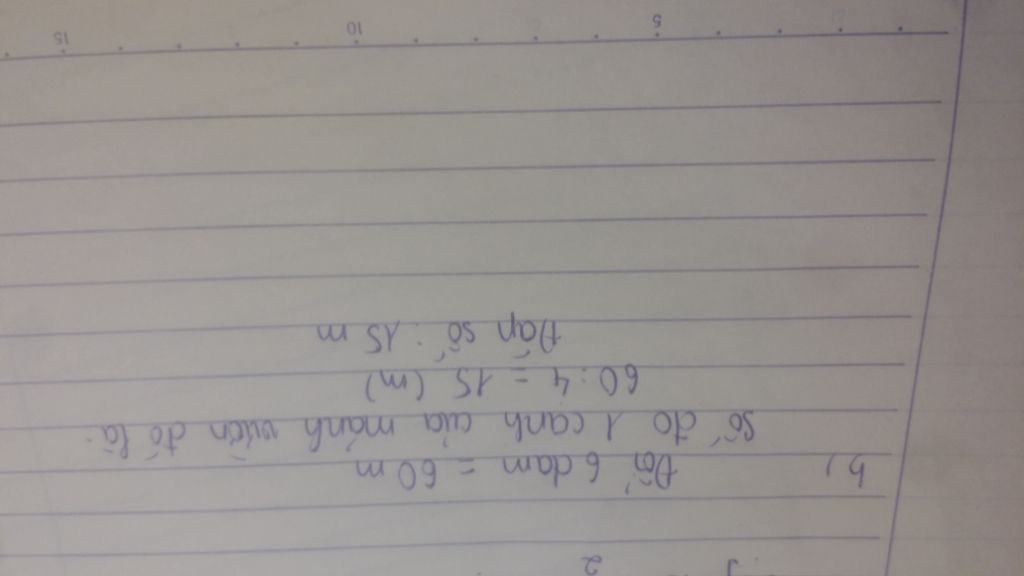 2
b) Đổi 6 dam = 60 m
số đo 1 cạnh của mảnh vườn đó là:
60 : 4 = 15 (m)
Đáp số : 15 m
5 10 15